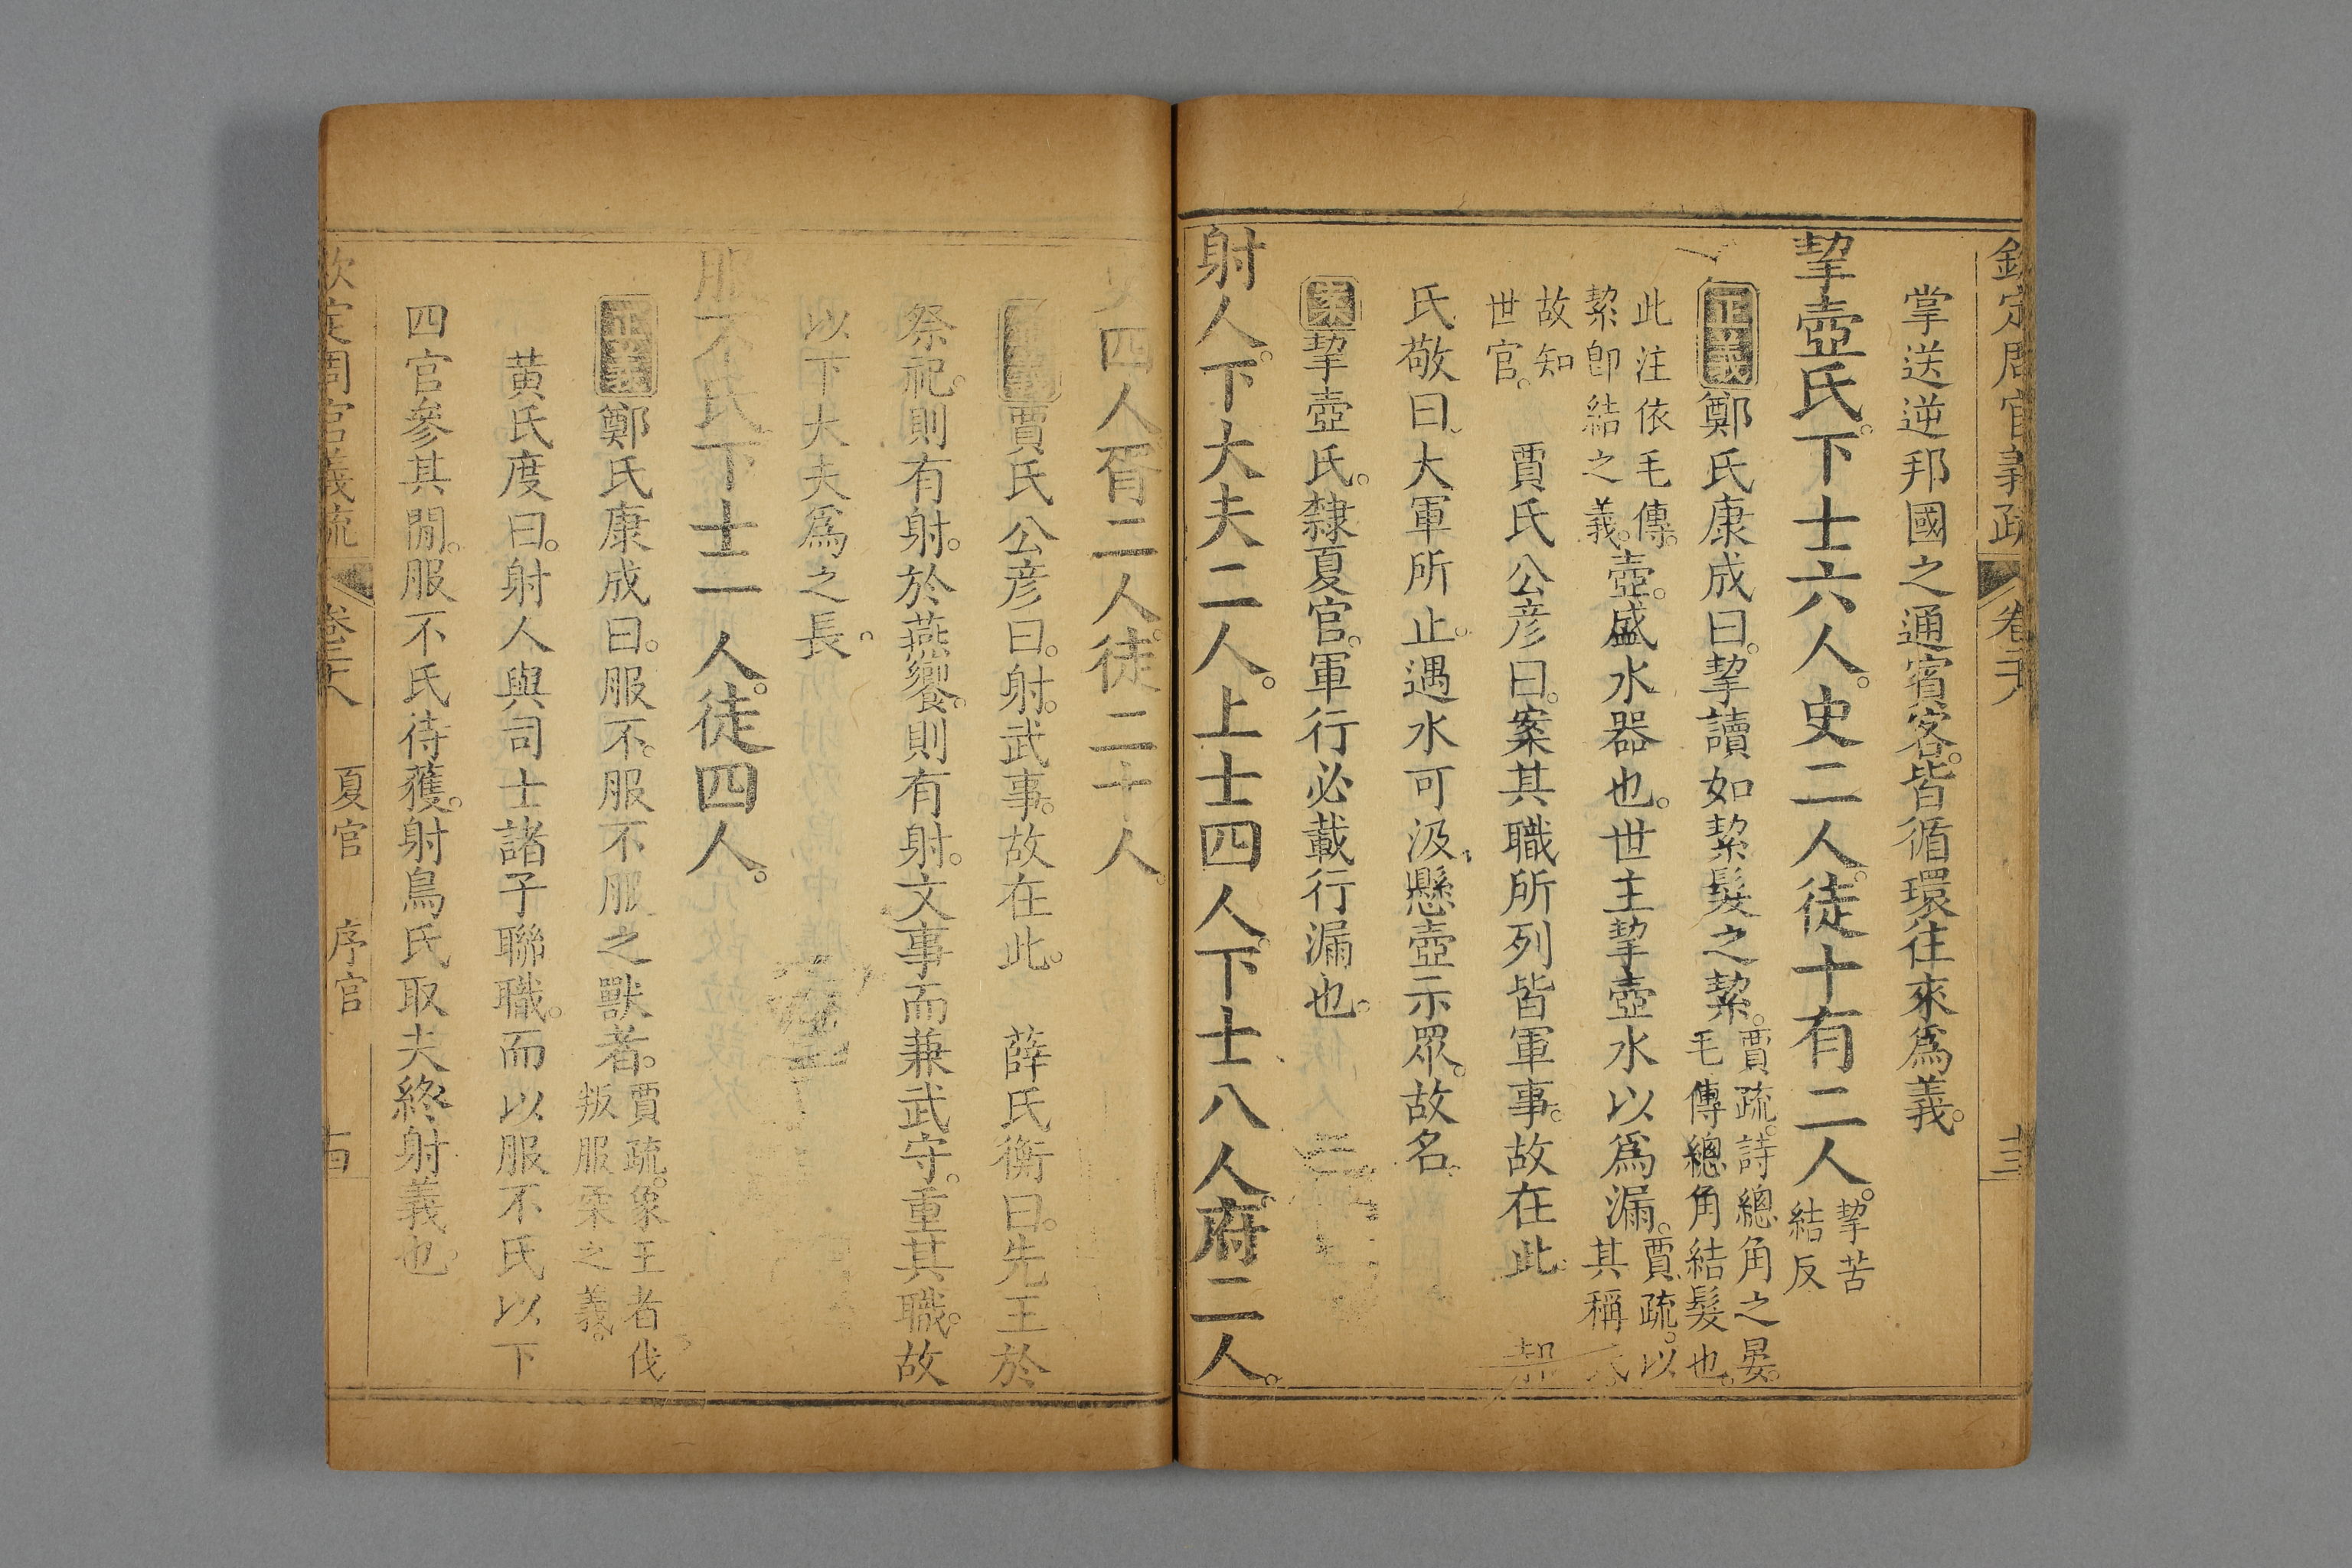 欽定周官義疏 卷二十八 十三
掌送逆邦國之通賓客。皆循環往來爲義。
挈壺氏。下士六人。史二人。徒十有二人。挈苦結反
正義鄭氏康成曰。挈讀如絜髮之絜。賈疏。詩總角之晏。毛傳總角結髮也。
此注依毛傳。絜卽結之義。壺。盛水器也。世主挈壺水以爲漏。賈疏。以其稱氏
故知世官。 賈氏公彥曰。案其職所列皆軍事。故在此。 契
氏敬曰。大軍所止。遇水可汲。懸壺示眾。故名。
案挈壺氏。隸夏官。軍行必載行漏也。
射人。下大夫二人。上士四人。下士八人。府二人。
史四人。胥二人。徒二十人。
正義賈氏公彥曰。射。武事。故在此。 薛氏衡曰。先王於
祭祀。則有射。於燕饗。則有射。文事而兼武守。重其職。故
以下大夫爲之長。
服不氏。下士一人。徒四人。
正義鄭氏康成曰。服不。服不服之獸者。賈疏。象王者伐叛服柔之義。
黃氏度曰。射人與司士諸子聯職。而以服不氏以下
四官參其閒。服不氏待獲。射鳥氏取夫終射義也。
欽定周官義疏 卷二十八 夏官 序官